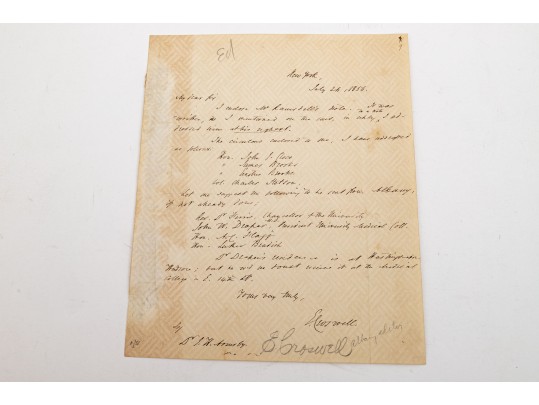 Ed
New York,
July 24, 1856.
My dear Sir
I inclose Mr note. It was
written, as I mentioned on the card, in reply, I ad-
dressed him at his request.
The circulars enclosed to me, I have addressed
as follows
Hon. John J. Cisco
" James Brooks
" Erastus Brooks
Col. Charles Stetson.
Let me suggest the following to be sent from Albany,
if not already done,
Rev. Dr Ferris, Chancellor of the University
John W. Draper, President University Medical Coll.
Hon. Flagg
Hon. Luther Bradish
Dr Draper's residence is at Hastings upon
Hudson; but he will no doubt receive it at the Medical
College in E. 14th St.
Yours very truly,
E Croswell
Dr J. H. Armsby.
E Croswell Albany editor